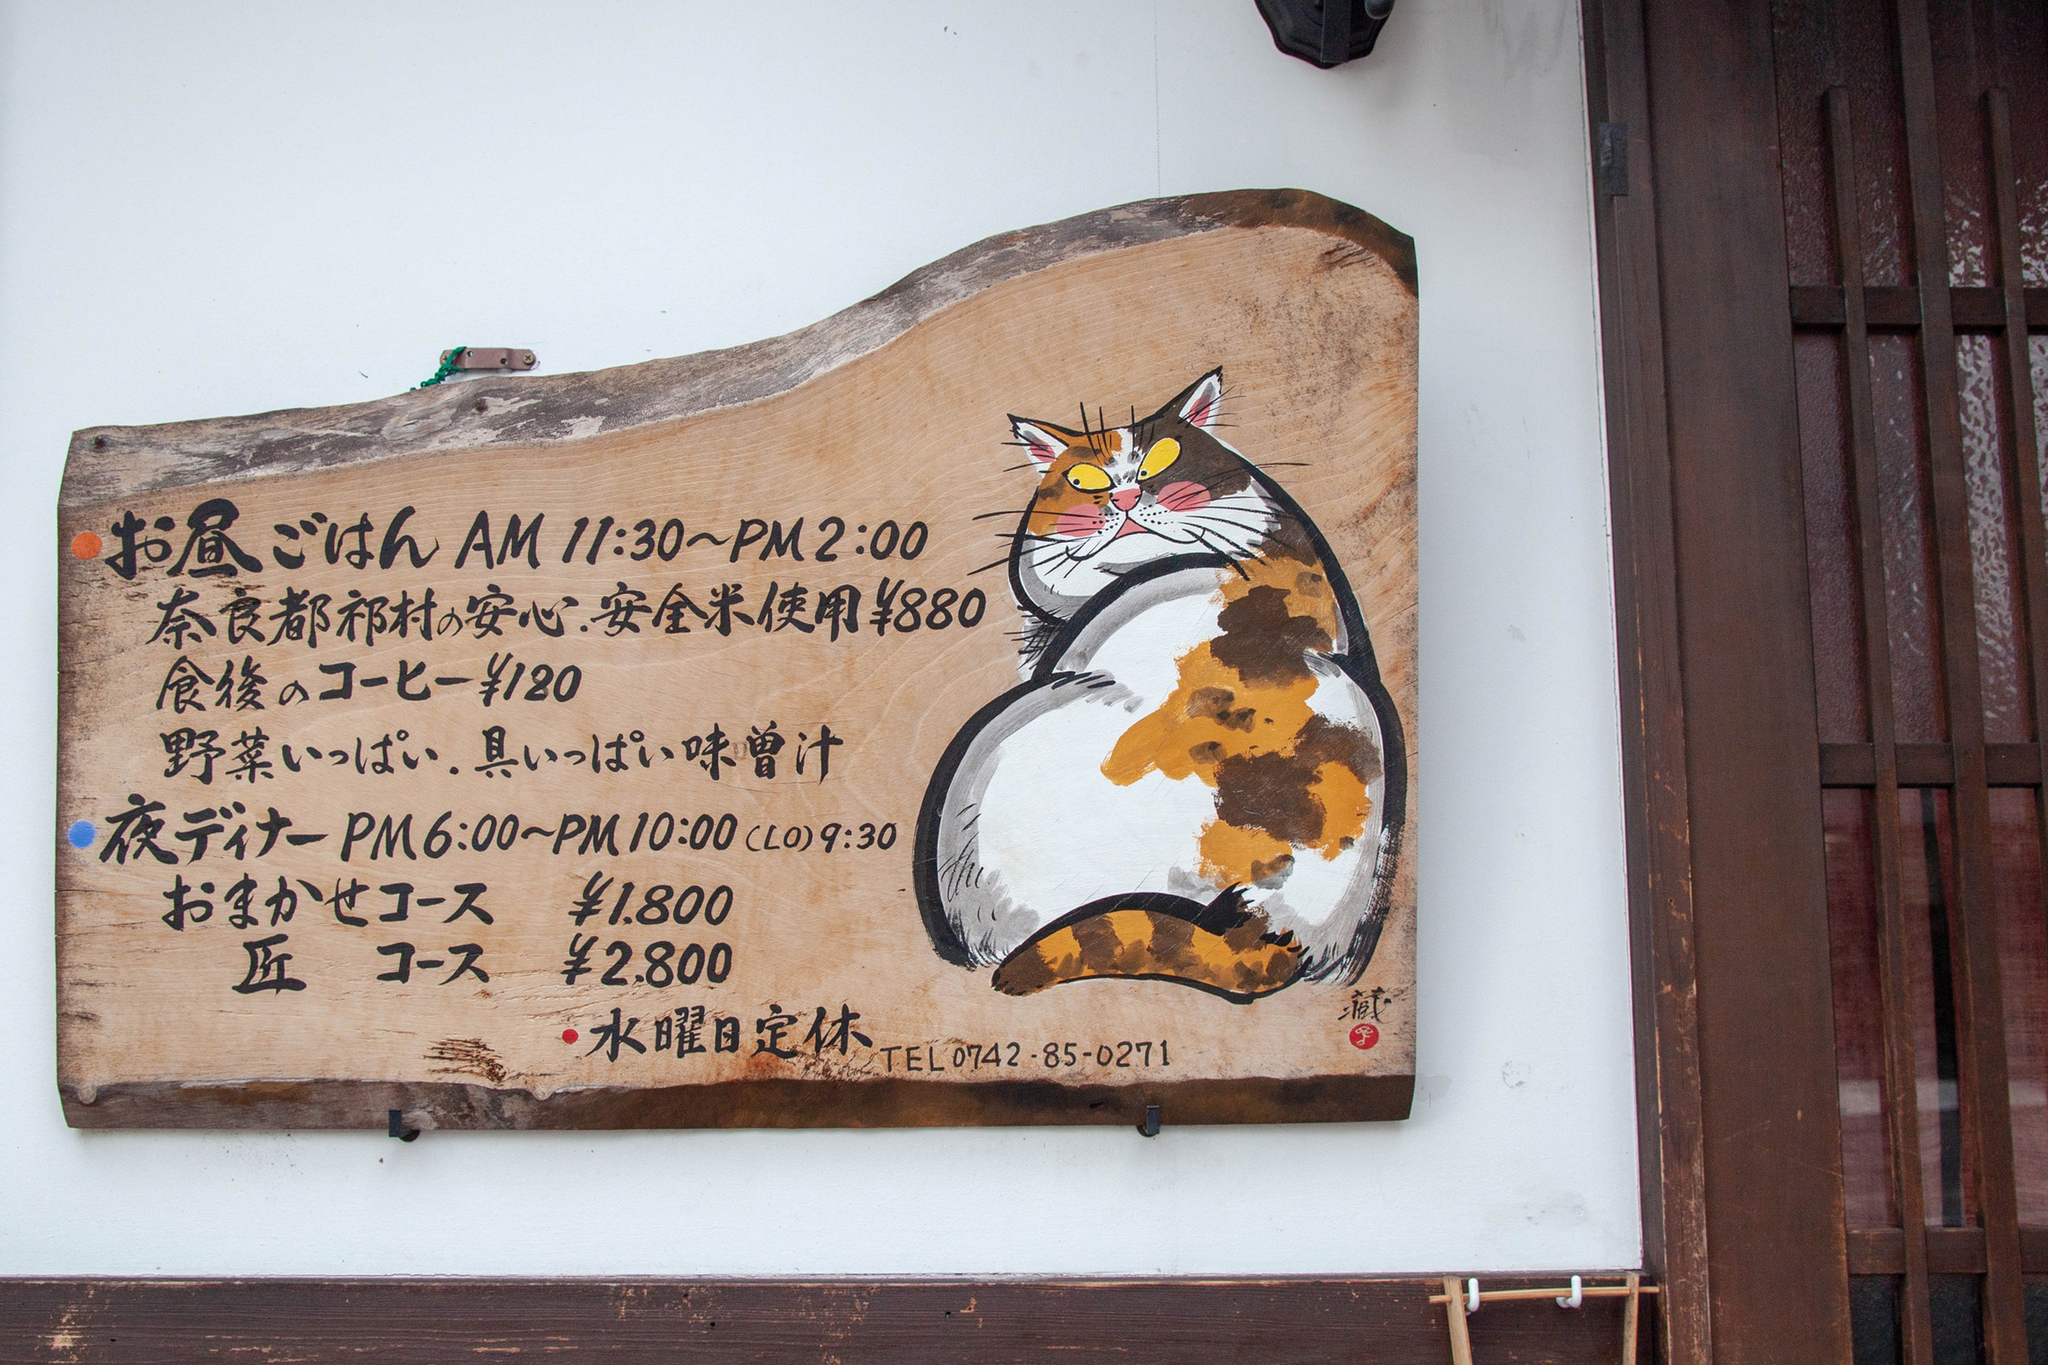 お昼ごはん AM 11:30〜PM 2:00
奈良都祁村の安心.安全米使用¥880
食後のコーヒー¥120
野菜いっぱい.具いっぱい味曽汁
夜ディナー PM 6:00〜PM 10:00 (LO) 9:30
おまかせコース ¥1.800
匠 コース ¥2.800
水曜日定休 TEL 0742-85-0271
蔵